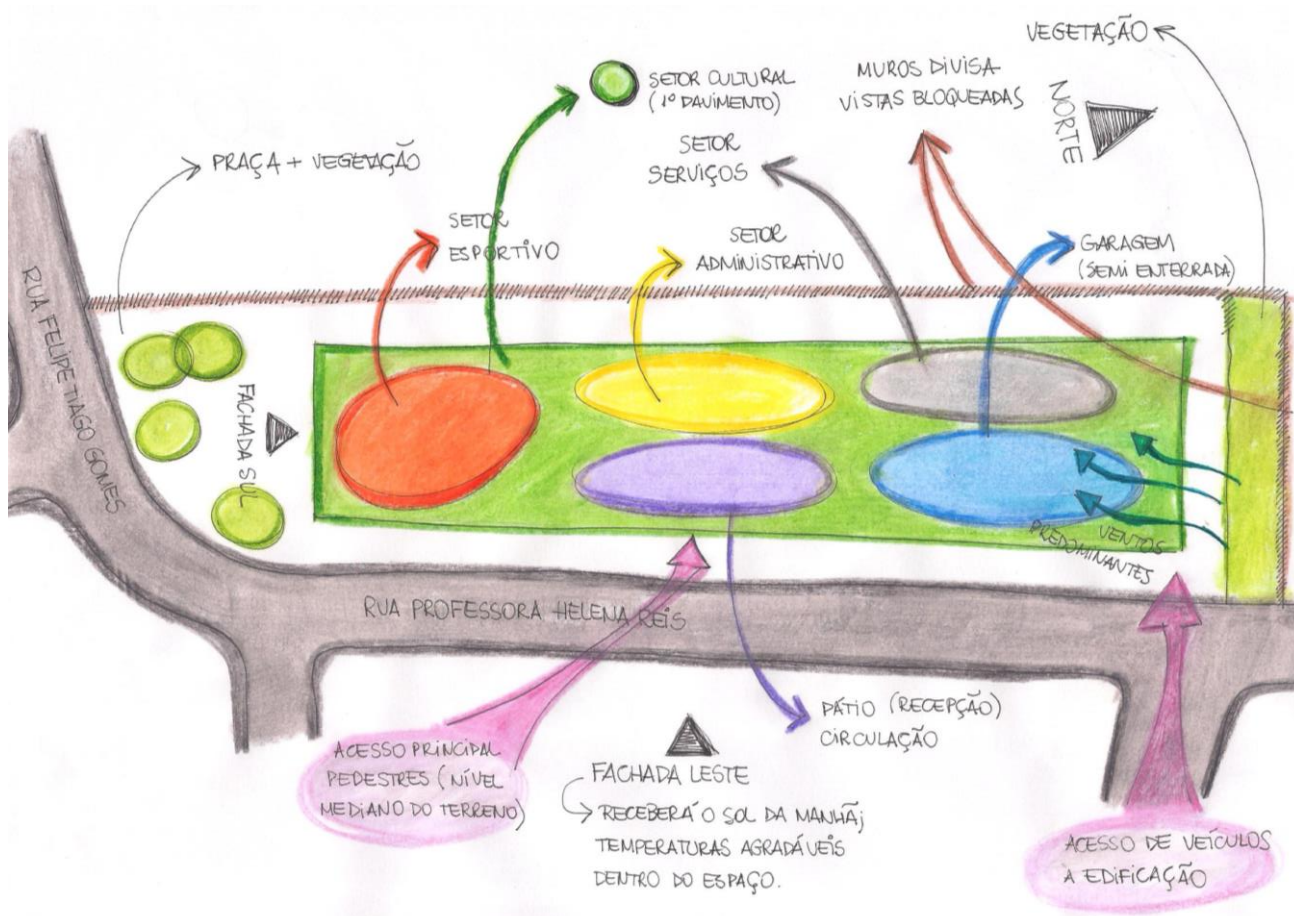 VEGETAÇÃO
SETOR CULTURAL
(1º PAVIMENTO)
MUROS DIVISA
VISTAS BLOQUEADAS
NORTE
PRAÇA + VEGETAÇÃO
SETOR
SERVIÇOS
SETOR
ESPORTIVO
SETOR
ADMINISTRATIVO
GARAGEM
(SEMI ENTERRADA)
RUA FELIPE TIAGO GOMES
FACHADA SUL
VENTOS
PREDOMINANTES
RUA PROFESSORA HELENA REIS
PÁTIO (RECEPÇÃO)
CIRCULAÇÃO
ACESSO PRINCIPAL
PEDESTRES (NÍVEL
MEDIANO DO TERRENO)
FACHADA LESTE
RECEBERÁ O SOL DA MANHÃ;
TEMPERATURAS AGRADÁVEIS
DENTRO DO ESPAÇO.
ACESSO DE VEÍCULOS
A EDIFICAÇÃO